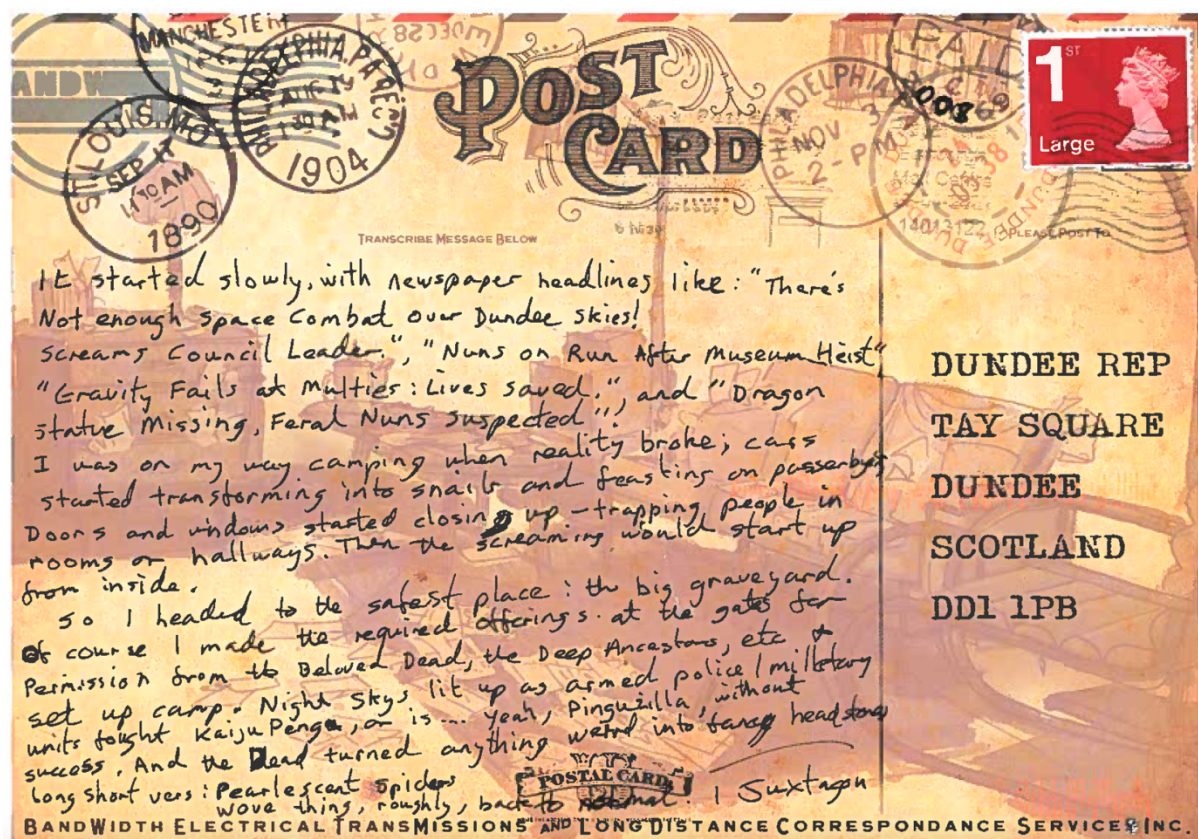 MANCHESTER
ST. LOUIS. MO.
SEP 17
11 30 AM
1890
PHILADELPHIA. PA
AUG 19
1 30 AM
1904
WED DEC 28
POST
CARD
PHILADELPHIA
NOV 3
2 - PM
PAID
2008
DUNDEE
14013122
1ST
Large
TRANSCRIBE MESSAGE BELOW
PLEASE POST TO
It started slowly, with newspaper headlines like: "There's
Not enough space combat over Dundee skies!
screams Council Leader.", "Nuns on Run After Museum Heist"
"Gravity Fails at Multies: Lives saved.", and "Dragon
statue Missing, Feral Nuns Suspected".
I was on my way camping when reality broke; cars
started transforming into snails and feasting on passerbys
Doors and windows started closing up - trapping people in
rooms or hallways. Then the screaming would start up
from inside.
So I headed to the safest place: the big graveyard.
Of course I made the required offerings at the gates for
Permission from the Beloved Dead, the Deep Ancestors, etc &
set up camp. Night Skys lit up as armed police/miletary
units fought KaijuPengu, or is... yeah, Pinguzilla, without
success. And the Dead turned anything weird into fancy headstones
Long short vers: Pearlescent spiders
wove thing, roughly, back to normal.
DUNDEE REP
TAY SQUARE
DUNDEE
SCOTLAND
DD1 1PB
POSTAL CARD
BANDWIDTH ELECTRICAL TRANSMISSIONS AND LONG DISTANCE CORRESPONDANCE SERVICES INC.